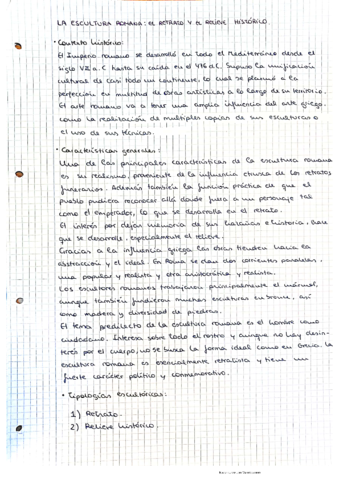 LA ESCULTURA ROMANA: EL RETRATO Y EL RELIEVE HISTÓRICO.
• Contexto histórico:
El Imperio romano se desarrolló en todo el Mediterráneo desde el
siglo VII a.C hasta su caída en el 476 d.C. Supuso la unificación
cultural de casi todo un continente, lo cual se plasmó a la
perfección en multitud de obras artísticas a lo largo de su territorio.
El arte romano va a tener una amplia influencia del arte griego.
como la realización de multiples copias de sus esculturas o
el uso de sus técnicas.
• Características generales:
Una de las principales características de la escultura romana
es su realismo, proveniente de la influencia etrusca de los retratos
funerarios. Además también la función práctica de que el
pueblo pudiera reconocer allá donde fuera a un personaje tal
como el emperador, lo que se desarrolla en el retrato.
El interés por dejar memoria de sus hazañas e historia, hace
que se desarrolle, especialmente el relieve.
Gracias a la influencia griega las obras tienden hacia la
abstracción y el ideal. En Roma se dan dos corrientes paralelas,
una popular y realista y otra aristocrática y realista.
Los escultores romanos trabajaron principalmente el mármol,
aunque también fundieron muchas esculturas en bronce, así
como madera y diversidad de piedras.
El tema predilecto de la escultura romana es el hombre como
ciudadano. Interesa sobre todo el rostro y aunque no hay desin-
terés por el cuerpo, no se busca la forma ideal como en Grecia. La
escultura romana es esencialmente retratista y tiene un
fuerte carácter político y conmemorativo.
• Tipologías escultóricas:
1) Retrato.
2) Relieve histórico.